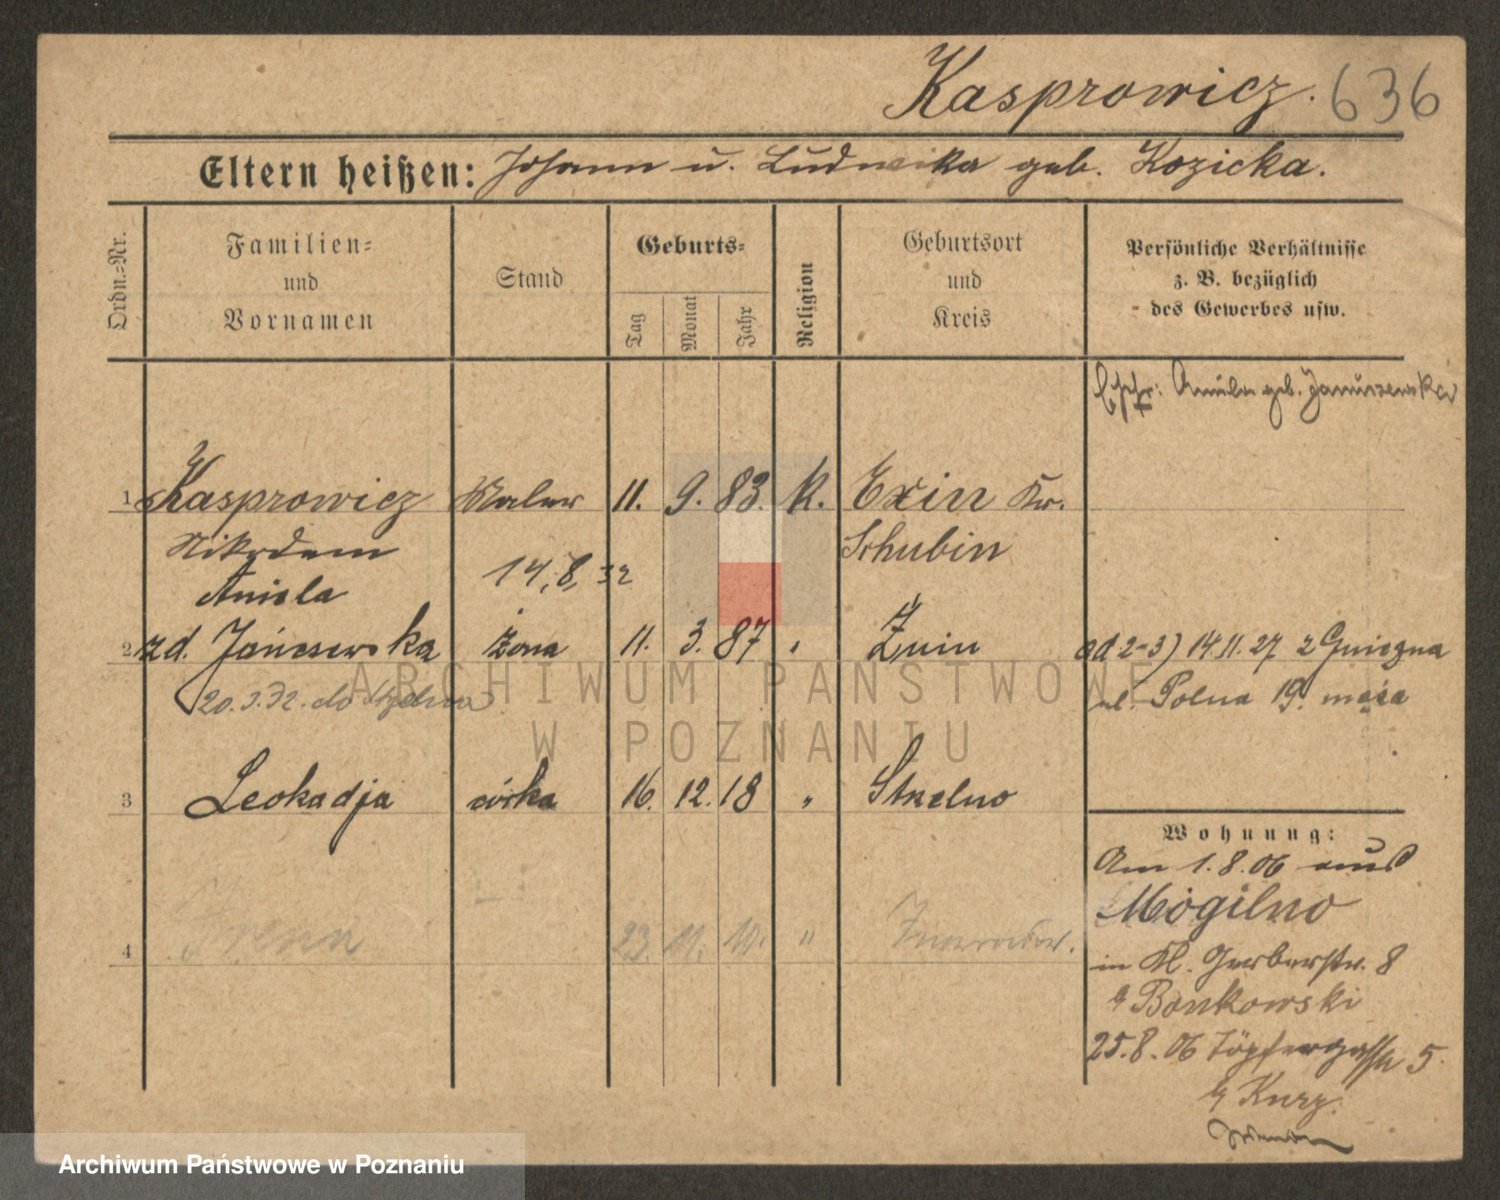 Kasprowicz. 636
Eltern heißen: Johann u. Ludwika geb. Kozicka.
Ordn.-Nr.
Familien-
und
Vornamen
Stand
Geburts-
Tag
Monat
Jahr
Religion
Geburtsort
und
Kreis
Persönliche Verhältnisse
z. B. bezüglich
des Gewerbes usw.
Ehefr: Aniela geb. Januszewska
1 Kasprowicz Maler 11. 9. 83. k. Exin Kr.
Nikodem Schubin
Aniela 14,8,32
2 zd. Jańczewska żona 11. 3. 87 " Żnin od 2-3) 14.11.27 z Gniezna
20.3.32. do ul. Polna 19. maja
3 Leokadja córka 16. 12. 18 " Strzelno
Wohnung:
Am 1.8.06 aus
Mogilno
4 Irena 23. 11. 10. "
in Kl. Gerberstr. 8
b Bonkowski
25.8.06 Töpfergasse 5.
b Kurz.
ARCHIWUM PAŃSTWOWE
W POZNANIU
Archiwum Państwowe w Poznaniu